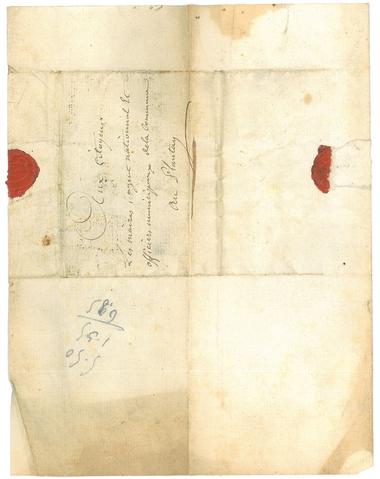 Aux Citoyens
Les maires, agent national &
officiers municipaux de la Commune
Au Plantay
685
1.35
5.50